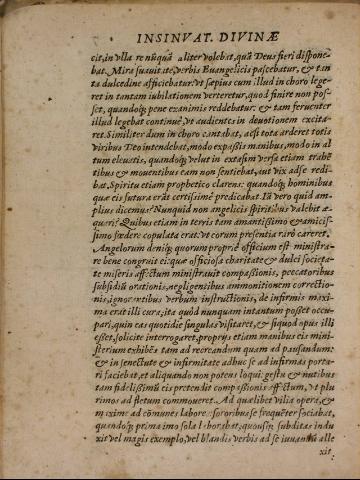 INSINVAT. DIVINÆ
cit, in vlla re nũquã aliter volebat, quã Deus fieri dispone-
bat. Mira suauitate, verbis Euangelicis pascebatur, & tan
ta dulcedine afficiebatur. vt sæpius cum illud in choro lege-
ret in tantam iubilationem verteretur, quod finire non pos-
set, quandoq; pene exanimis reddebatur: & tam feruenter
illud legebat continuè, vt audientes in deuotionem excita-
ret. Similiter dum in choro cantabat, acsi tota arderet totis
viribus Deo intendebat, modo expãsis manibus, modo in al
tum eleuatis, quandoq; velut in extasim versa etiam trahẽ
tibus & mouentibus eam non sentiebat, aut vix adse redi-
bat. Spiritu etiam prophetico clarens: quandoq; hominibus
quæ eis futura erãt certissimè prædicabat. Iã vero quid am-
plius dicemus? Nunquid non angelicis spiritibus valebit æ-
quari? Quibus etiam in terris tam amantissimo & amicis-
simo fœdere copulata erat, vt eorum præsentia raro careret.
Angelorum deniq; quorum propriè officium est ministra-
re bene congruit ei: quæ officiosa charitate & dulci societa-
te miseris affectum ministrauit compaßionis, peccatoribus
subsidiũ orationis, negligentibus ammonitionem correctio-
nis, ignorantibus verbum instructionis, de infirmis maxi-
ma erat illi cura, ita quod nunquam intantum posset occu-
pari, quin eas quotidie singulas visitaret, & siquod opus illi
esset, solicite interrogaret, proprijs etiam manibus eis mini-
sterium exhibẽs tam ad recreandum quam ad pausandum:
& in senectute & infirmitate adhuc se ad infirmas porta-
ri faciebat, et aliquando non potens loqui: gestu & nutibus
tam fidelißimũ eis pretendit compaßionis affectum, vt plu
rimos ad fletum commoueret. Ad quælibet vilia opera, &
maximè ad cõmunes labores sororibus se frequẽter sociabat,
quandoq; prima imo sola laborabat, quousq; subditas indu
xit vel magis exemplo, vel blandis verbis ad se iuuandũ alle
xit.